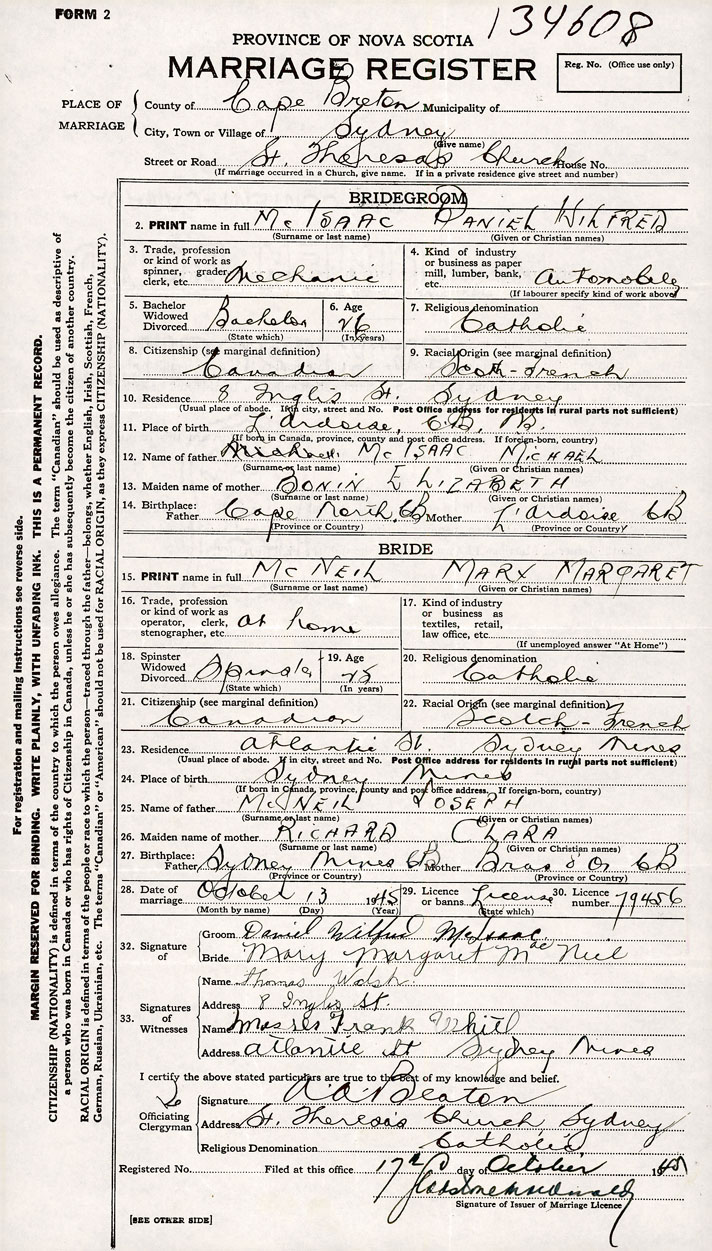 FORM 2
134608
PROVINCE OF NOVA SCOTIA
MARRIAGE REGISTER
Reg. No. (Office use only)
PLACE OF MARRIAGE
County of Cape Breton Municipality of
City, Town or Village of Sydney
(Give name)
Street or Road St. Theresa's Church House No.
(If marriage occurred in a Church, give name. If in a private residence give street and number)
BRIDEGROOM
2. PRINT name in full McISAAC DANIEL WILFRED
(Surname or last name) (Given or Christian names)
3. Trade, profession or kind of work as spinner, grader, clerk, etc. Mechanic
4. Kind of industry or business as paper mill, lumber, bank, etc. Automobile
(If labourer specify kind of work above)
5. Bachelor Widowed Divorced Bachelor
(State which)
6. Age 26
(In years)
7. Religious denomination Catholic
8. Citizenship (see marginal definition) Canadian
9. Racial Origin (see marginal definition) Scotch-French
10. Residence 8 Inglis St. Sydney
(Usual place of abode. If in city, street and No. Post Office address for residents in rural parts not sufficient)
11. Place of birth L'Ardoise, C.B.
(If born in Canada, province, county and post office address. If foreign-born, country)
12. Name of father McISAAC MICHAEL
(Surname or last name) (Given or Christian names)
13. Maiden name of mother BONIN ELIZABETH
(Surname or last name) (Given or Christian names)
14. Birthplace: Father Cape North, CB Mother L'Ardoise CB
(Province or Country) (Province or Country)
BRIDE
15. PRINT name in full McNEIL MARY MARGARET
(Surname or last name) (Given or Christian names)
16. Trade, profession or kind of work as operator, clerk, stenographer, etc. at home
17. Kind of industry or business as textiles, retail, law office, etc.
(If unemployed answer "At Home")
18. Spinster Widowed Divorced
(State which)
19. Age
(In years)
20. Religious denomination Catholic
21. Citizenship (see marginal definition) Canadian
22. Racial Origin (see marginal definition) Scotch-French
23. Residence Atlantic St. Sydney Mines
(Usual place of abode. If in city, street and No. Post Office address for residents in rural parts not sufficient)
24. Place of birth Sydney Mines
(If born in Canada, province, county and post office address. If foreign-born, country)
25. Name of father McNEIL JOSEPH
(Surname or last name) (Given or Christian names)
26. Maiden name of mother RICHARD CLARA
(Surname or last name) (Given or Christian names)
27. Birthplace: Father Sydney Mines CB Mother Bras d'Or CB
(Province or Country) (Province or Country)
28. Date of marriage October 13 1945
(Month by name) (Day) (Year)
29. Licence or banns License
(State which)
30. Licence number 79456
32. Signature of
Groom Daniel Wilfred McIsaac
Bride Mary Margaret MacNeil
33. Signatures of Witnesses
Name Thomas Walsh
Address 8 Inglis St.
Name Frank
Address Atlantic St Sydney Mines
I certify the above stated particulars are true to the best of my knowledge and belief.
Officiating Clergyman
Signature Beaton
Address St. Theresa's Church, Sydney
Religious Denomination Catholic
Registered No. Filed at this office 17th day of October 1945
Signature of Issuer of Marriage Licence
[SEE OTHER SIDE]
For registration and mailing instructions see reverse side.
MARGIN RESERVED FOR BINDING. WRITE PLAINLY, WITH UNFADING INK. THIS IS A PERMANENT RECORD.
CITIZENSHIP (NATIONALITY) is defined in terms of the country to which the person owes allegiance. The term "Canadian" should be used as descriptive of
a person who was born in Canada or who has rights of Citizenship in Canada, unless he or she has subsequently become the citizen of another country.
RACIAL ORIGIN is defined in terms of the people or race to which the person—traced through the father—belongs, whether English, Irish, Scottish, French,
German, Russian, Ukrainian, etc. The terms "Canadian" or "American" should not be used for RACIAL ORIGIN, as they express CITIZENSHIP (NATIONALITY).